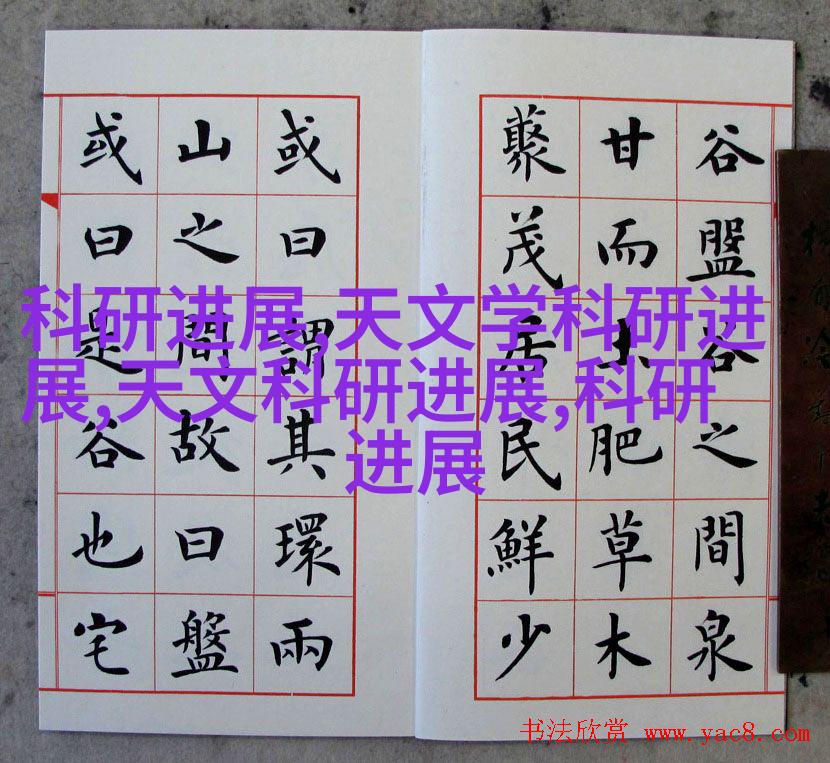 谷盤谷之間泉
甘而土肥草木
藂茂居民鮮少
或曰謂其環兩
山之間故曰盤
或曰是谷也宅
科研进展,天文学科研进
展,天文科研进展,科研
进展
书法欣赏 www.yac8.com